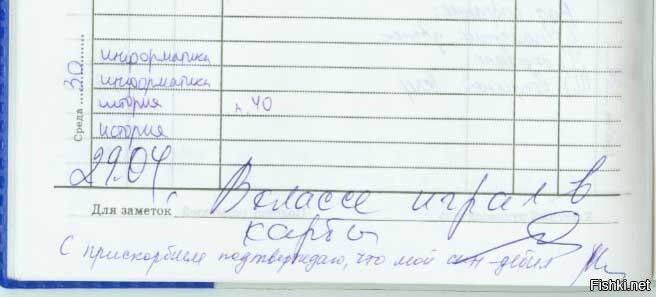 Среда 30
информатика
информатика
история п. 40
история
29.04. В классе играл в
Для заметок
карты
С прискорбием подтверждаю, что мой сын - дебил
Fishki.net